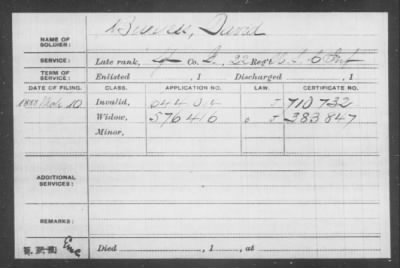 NAME OF SOLDIER: David
SERVICE: Late rank, Co. 22 Reg't U. S. C. Inf
TERM OF SERVICE: Enlisted , 1 Discharged , 1
DATE OF FILING. CLASS. APPLICATION NO. LAW. CERTIFICATE NO.
1888 10 Invalid, 644014 J 710732
Widow, 576416 J 383847
Minor,
ADDITIONAL SERVICES:
REMARKS:
Died , 1 , at